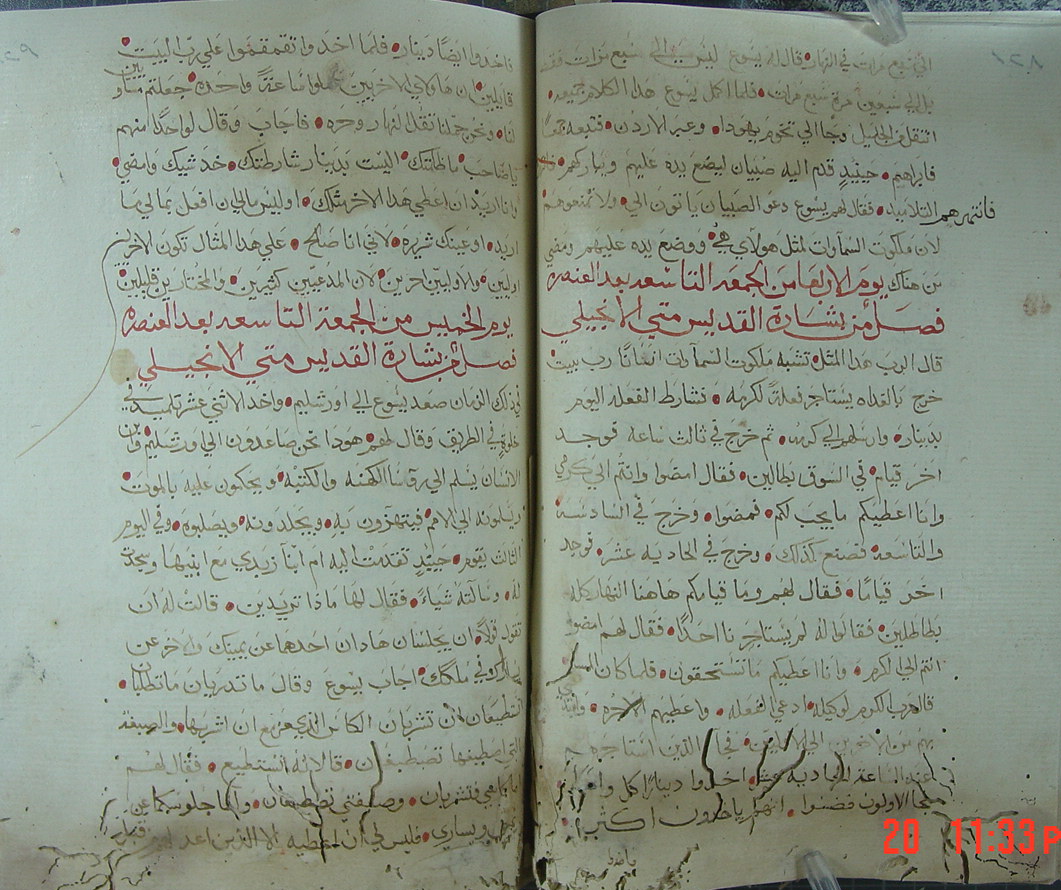 الي سبع مرات في النهار قال له يسوع ليس الي سبع مرات فقط
بل الي سبعين مرة سبع مرات فلما اكمل يسوع هذا الكلام جميعه
انتقل من الجليل وجا الي تخوم يهودا وعبر الاردن فتبعه جمعا
فابراهيم حينيدٍ قدم اليه صبيان ليضع يده عليهم ويباركهم
فانتهرهم التلاميد فقال لهم يسوع دعو الصبيان ياتون الي ولا تمنعوهم
لان ملكوت السماوات لمثل هولاي هي ووضع يده عليهم ومضي
من هناك يوم الاربعا من الجمعه التاسعه بعد العنصره
فصل من بشارة القديس متي الانجيلي
قال الرب هذا المثل تشبه ملكوت السماوات انسانًا رب بيت
خرج بالغداه يستاجر فعلةً لكرمه فشارط الفعله اليوم
بدينار وارسلهم الي كرمه ثم خرج في ثالث ساعه فوجد
اخر قيام في السوق بطالين فقال امضوا وانتم الي كرمي
وانا اعطيكم ما يجب لكم فمضوا وخرج في السادسه
والتاسعه فصنع كذالك وخرج في الحاديه عشر فوجد
اخر قيامًا فقال لهم وما قيامكم هاهنا النهار كله
بطالين فقالوا له لم يستاجرنا احدًا فقال لهم امضوا
انتم الي الكرم وانا اعطيكم ما تستحقون فلما كان المسا
قال رب الكرم لوكيله ادعي الفعله واعطيهم الاجره
بهم من الاخرين الي الاولين الذين استاجرهم
عند الساعة الحاديه عشر اخدوا دينارًا كل واحد
فجا الاولون فظنوا انهم ياخدون اكتر
ياخد
فاخدوا ايضًا دينار فلما اخدوا تقمقموا علي رب البيت
قايلين ان هاولاي الاخريين عملوا ساعةً واحده جعلتهم
لنا ونحن حملنا تقل النهار وحره فاجاب وقال لواحدًا منهم
يا صاحب ما ظلمتك اليست بدينار شارطتك خد شيك وامضي
وانا اريد ان اعطي هدا الاخر مثلك اوليس مالي ان افعل بمالي ما
اريد او عينك شريره لاني انا صالح علي هدا المثال تكون الاخرين
اولين والاوليين اخرين لان المدعيين كثيرين والمختارين قليلين
يوم الخميس من الجمعة التاسعه بعد العنصره
فصل من بشارة القديس متي الانجيلي
في ذلك الزمان صعد يسوع الي اورشليم واخد الاثني عشر تلميده في
خلوةٍ في الطريق وقال لهم هودا نحن صاعدون الي اورشليم وابن
الانسان يسلم الي رؤسا الكهنه والكتبه ويحكمون عليه بالموت
ويسلمونه الي الامم فيتهزون به ويجلدونه ويصلبوه وفي اليوم
الثالث يقوم حينيدٍ تقدمت اليه ام ابنا زبدي مع ابنيها وسجدت
له وسالته شياءً فقال لها ماذا تريدين قالت له ان
تقول قولا ان يجلسان هادان احدهما عن يمينك والاخر عن
في ملكك اجاب يسوع وقال ما تدريان ما تطلبان
اتستطيعان ان تشربان الكاس الذي مزمع ان اشربها والصبغه
التي اصطبغها تصطبغان قالا له نستطيع فقال لهم
اما كاسي فتشربان وصبغتي تصطبغان واما جلوسكما عن
يميني ويساري فليس لي ان اعطيه الا الذين اعد لهم
20 11:33P